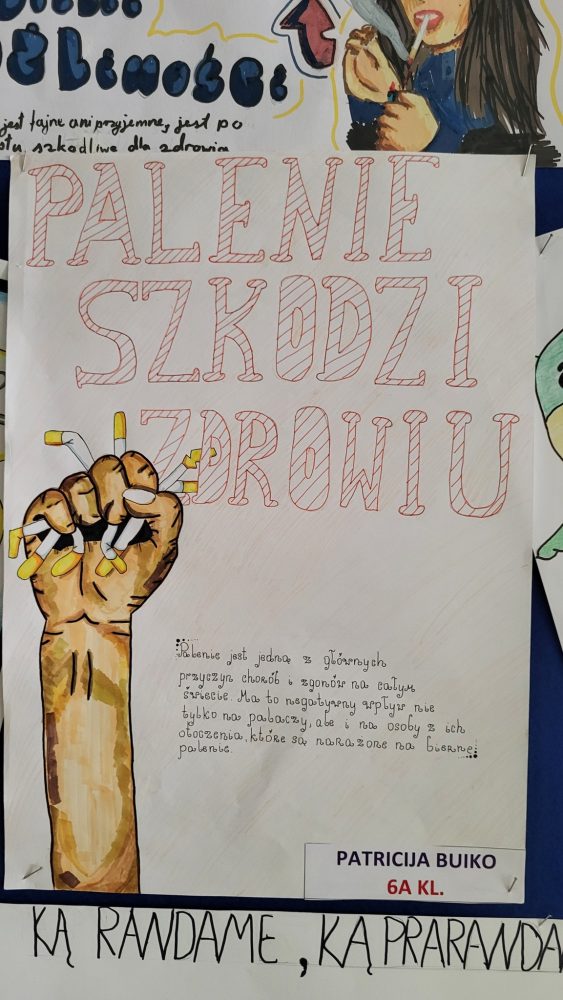 ŻLIWOŚCI
jest fajne ani przyjemne, jest po
szkodliwe dla zdrowia
PALENIE
SZKODZI
ZDROWIU
Palenie jest jedną z głównych
przyczyn chorób i zgonów na całym
świecie. Ma to negatywny wpływ nie
tylko na palaczy, ale i na osoby z ich
otoczenia, które są narażone na bierne
palenie.
PATRICIJA BUIKO
6A KL.
KĄ RANDAME, KĄ PRARANDA